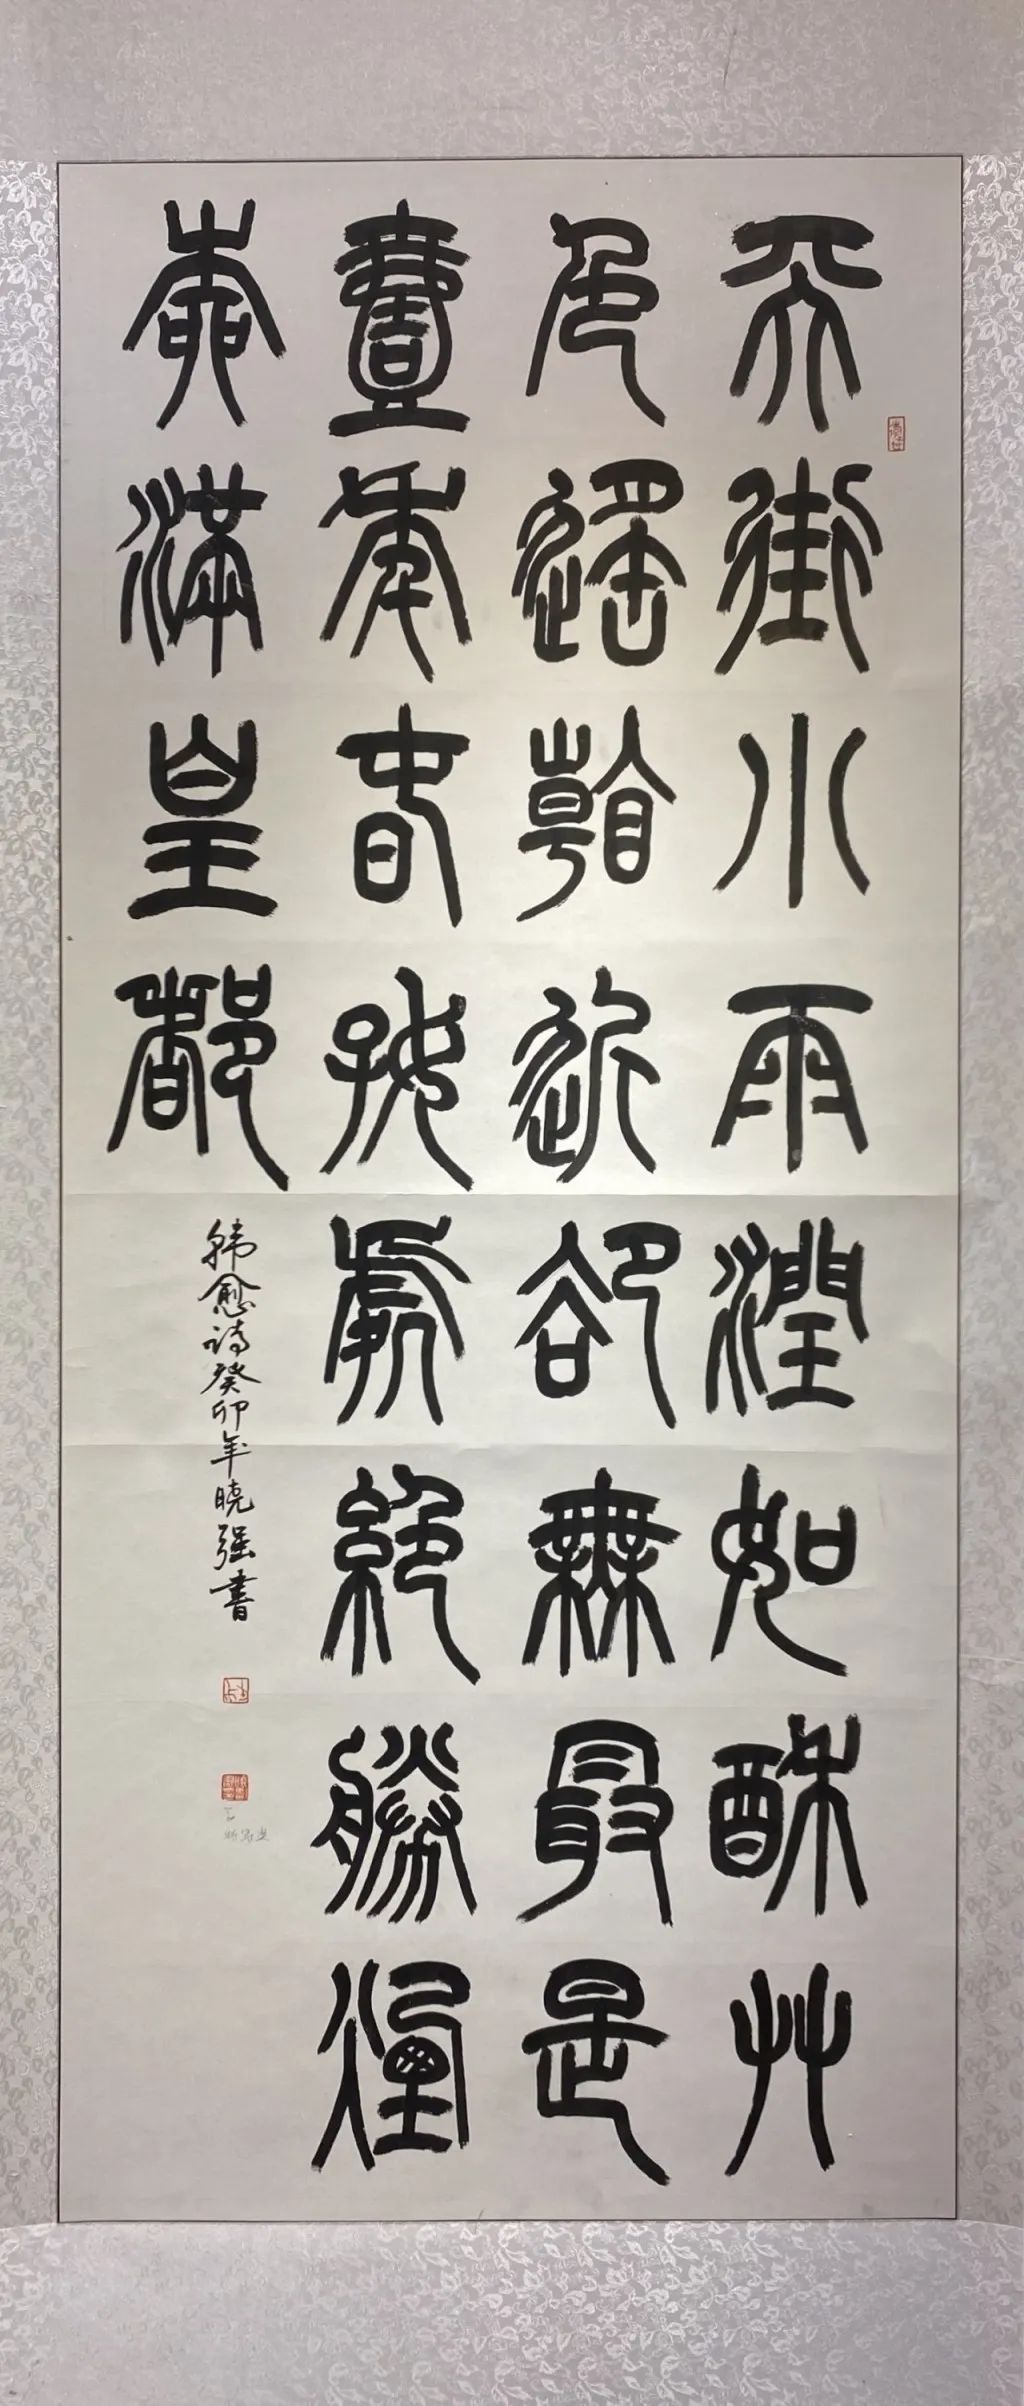 天街小雨潤如酥艸
色遙看近卻無最是
壹年春好處絕勝煙
柳滿皇都
韩愈诗癸卯年晓强書